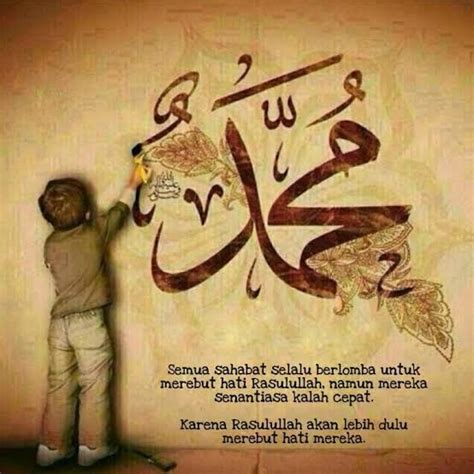 مُحَمَّدٌ
Semua sahabat selalu berlomba untuk
merebut hati Rasulullah, namun mereka
senantiasa kalah cepat.
Karena Rasulullah akan lebih dulu
merebut hati mereka.